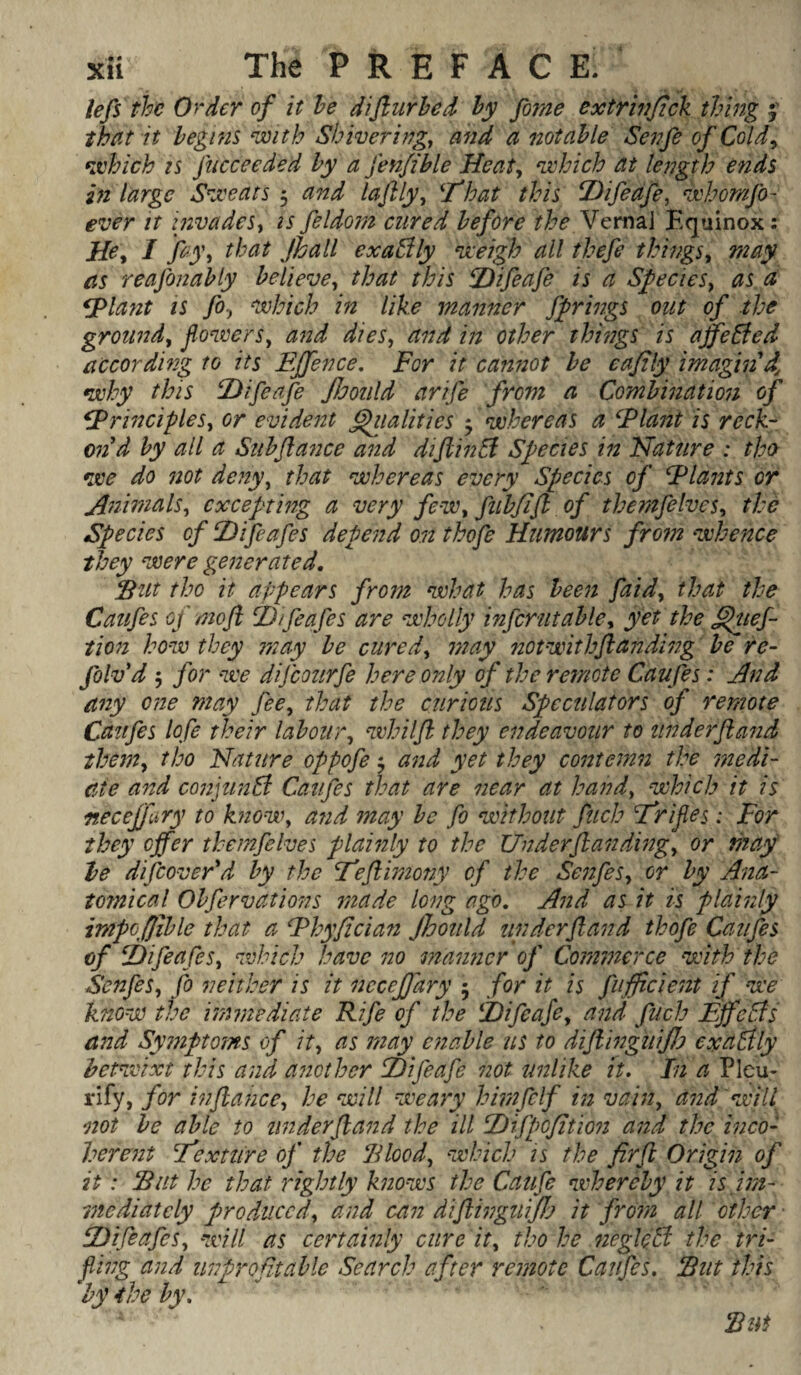 xii The PREFACE.
leſs the Order of it be diſturbed by ſome extrinſick thing ;
that it begins with Shivering, and a notable Senſe of Cold,
which is ſucceeded by a ſenſible Heat, which at length ends
in large Sweats ; and laſtly, That this Diſeaſe, whomſo-
ever it invades, is ſeldom cured before the Vernal Equinox :
He, I ſay, that ſhall exactly weigh all theſe things, may
as reaſonably believe, that this Diſeaſe is a Species, as a
Plant is ſo, which in like manner ſprings out of the
ground, flowers, and dies, and in other things is affected
according to its Eſſence. For it cannot be eaſily imagin'd
why this Diſeaſe ſhould ariſe from a Combination of
Principles, or evident Qualities ; whereas a Plant is reck-
on'd by all a Subſtance and diſtinct Species in Nature : tho
we do not deny, that whereas every Species of Plants or
Animals, excepting a very few, ſubſiſt of themſelves, the
Species of Diſeaſes depend on thoſe Humours from whence
they were generated.
But tho it appears from what has been ſaid, that the
Cauſes of moſt Diſeaſes are wholly inſcrutable, yet the Queſ-
tion how they may be cured, may notwithſtanding be re-
ſolv'd ; for we diſcourſe here only of the remote Cauſes : And
any one may ſee, that the curious Speculators of remote
Cauſes loſe their labour, whilſt they endeavour to underſtand
them, tho Nature oppoſe ; and yet they contemn the medi-
ate and conjunct Cauſes that are near at hand, which it is
neceſſary to know, and may be ſo without ſuch Trifles : For
they offer themſelves plainly to the Underſtanding, or may
be diſcover'd by the Teſtimony of the Senſes, or by Ana-
tomical Obſervations made long ago. And as it is plainly
impoſſible that a Phyſician ſhould underſtand thoſe Cauſes
of Diſeaſes, which have no manner of Commerce with the
Senſes, ſo neither is it neceſſary ; for it is ſufficient if we
know the immediate Riſe of the Diſeaſe, and ſuch Effects
and Symptoms of it, as may enable us to diſtinguiſh exactly
betwixt this and another Diſeaſe not unlike it. In a Pleu-
riſy, for inſtance, he will weary himſelf in vain, and will
not be able to underſtand the ill Diſpoſition and the inco-
herent Texture of the Blood, which is the firſt Origin of
it : But he that rightly knows the Cauſe whereby it is im-
mediately produced, and can diſtinguiſh it from all other
Diſeaſes, will as certainly cure it, tho he neglect the tri-
fling and unprofitable Search after remote Cauſes. But this
by the by.
But